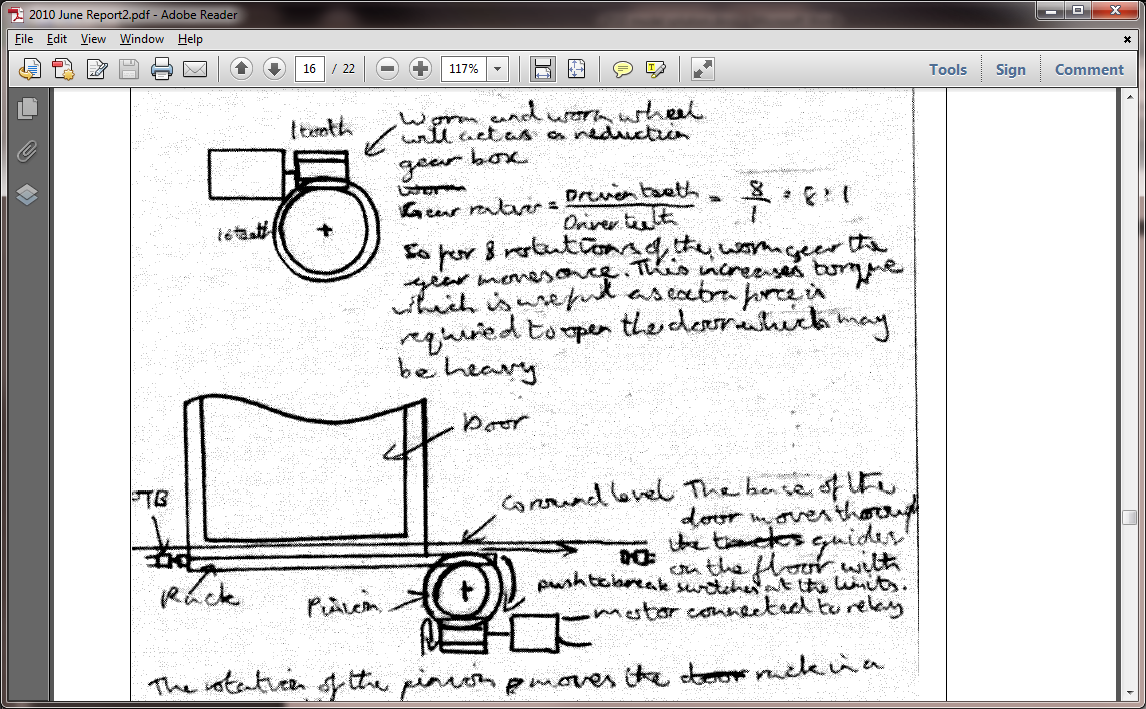 2010 June Report2.pdf - Adobe Reader
File Edit View Window Help
16 / 22 117% Tools Sign Comment
1 tooth
Worm and worm wheel
will act as a reduction
gear box
worm
Gear ratio = Driven teeth / Driver teeth = 8 / 1 = 8:1
teeth
So for 8 rotations of the worm gear the
gear moves once. This increases torque
which is useful as extra force is
required to open the door which may
be heavy
Door
PTB
Ground level
The base of the
door moves through
the tracks guides
on the floor with
push to break switches at the limits.
Rack
Pinion
motor connected to relay
The rotation of the pinion moves the door rack in a